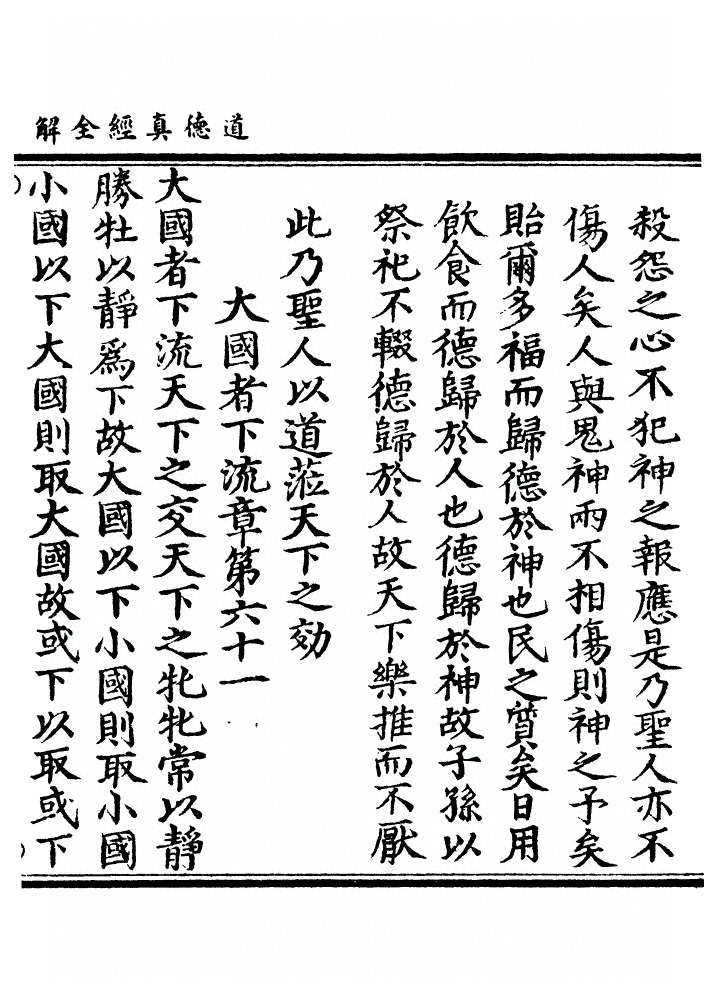 道德真經全解
殺怨之心不犯神之報應是乃聖人亦不
傷人矣人與鬼神兩不相傷則神之予矣
貽爾多福而歸德於神也民之質矣日用
飲食而德歸於人也德歸於神故子孫以
祭祀不輟德歸於人故天下樂推而不厭
此乃聖人以道蒞天下之効
大國者下流章第六十一
大國者下流天下之交天下之牝牝常以靜
勝牡以靜為下故大國以下小國則取小國
小國以下大國則取大國故或下以取或下